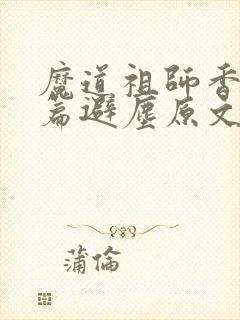 魔道祖師香
篇避塵原文
蒲倫